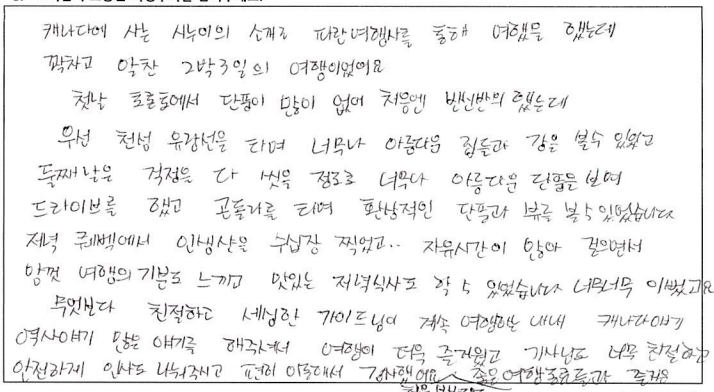 캐나다에 사는 시누이의 소개로 파란여행사를 통해 여행을 했는데
꽉차고 알찬 2박3일의 여행이었어요
첫날 토론토에서 단풍이 많이 없어 처음엔 반신반의 했는데
우선 천섬 유람선을 타며 너무나 아름다운 집들과 강을 볼수 있었고
둘째날은 걱정을 다 씻을 정도로 너무나 아름다운 단풍을 보며
드라이브를 했고 곤돌라를 타며 환상적인 단풍과 뷰를 볼수 있었습니다
저녁 퀘벡에서 인생샷을 수십장 찍었고.. 자유시간이 많아 걸으면서
맘껏 여행의 기분도 느끼고 맛있는 저녁식사도 할 수 있었습니다 너무너무 이뻤고요
무엇보다 친절하고 세심한 가이드님이 계속 여행하는 내내 캐나다얘기
역사얘기 많은 얘기를 해주셔서 여행이 더욱 즐거웠고 기사님도 너무 친절하고
안전하게 인사도 나눠주시고 편히 이동해서 감사했어요 좋은 여행동료들과 즐거운